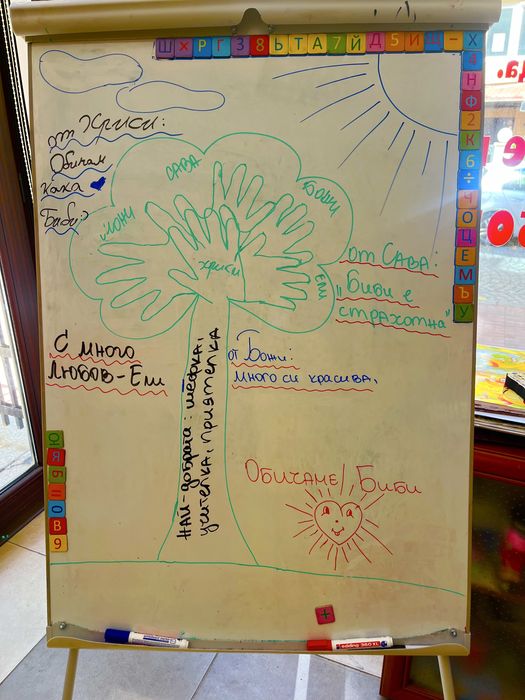 Ш Х Р Г З 8 Ь Т А 7 Й Д 5 И Щ − Х
4 Н Ф 2 К 6 ÷ Ч О Ц Е М Ъ У
от Хриси:
Обичам
кака
Биби
САВА
Божи
Мони
Хриси
Ели
от САВА:
"Биби е
страхотна"
С много
Любов - Ели
от Божи:
много си красива.
НАЙ-добрата: шефка,
учителка, приятелка
Обичаме!, Биби
Ю Я Б = 0 В 9
+